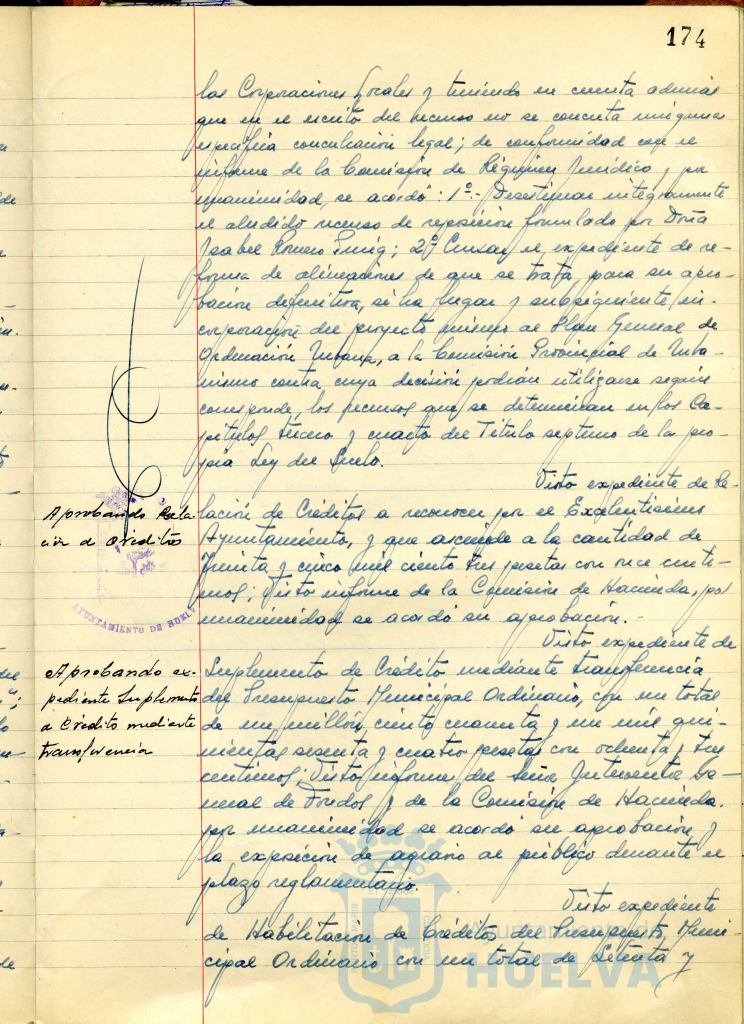 174
las Corporaciones Locales y teniendo en cuenta además
que en el escrito del recurso no se concreta ninguna
específica conculcación legal; de conformidad con el
informe de la Comisión de Régimen Jurídico y por
unanimidad, se acordó: 1º.- Desestimar integramente
el aludido recurso de reposición formulado por Doña
Isabel Romero Puig; 2º Cursar el expediente de re-
forma de alineaciones de que se trata para su apro-
bación definitiva, si ha lugar y subsiguiente in-
corporación del proyecto mismo al Plan General de
Ordenación Urbana, a la Comisión Provincial de Urba-
nismo contra cuya decisión podrán utilizarse según
corresponde, los recursos que se determinan en los Ca-
pítulos tercero y cuarto del Título septimo de la pro-
pia Ley del Suelo.
Visto expediente de Re-
Aprobando Rela
ción de Creditos
lación de Créditos a reconocer por el Excelentisimo
Ayuntamiento, y que asciende a la cantidad de
Treinta y cinco mil ciento tres pesetas con once cénti-
mos; Visto informe de la Comisión de Hacienda, por
unanimidad se acordó su aprobación.-
AYUNTAMIENTO DE HUELVA
Visto expediente de
Aprobando ex-
pediente Suplemento
a Crédito mediante
transferencia
Suplemento de Crédito mediante transferencia
del Presupuesto Municipal Ordinario, con un total
de un millón, ciento cuarenta y un mil qui-
nientas sesenta y cuatro pesetas con ochenta y tres
centimos; Visto informe del Señor Interventor Ge-
neral de Fondos y de la Comisión de Hacienda.
por unanimidad se acordó su aprobación y
la exposición de agrario al público durante el
plazo reglamentario.
Visto expediente
de Habilitación de Créditos del Presupuesto Muni-
cipal Ordinario con un total de Setenta y
HUELVA